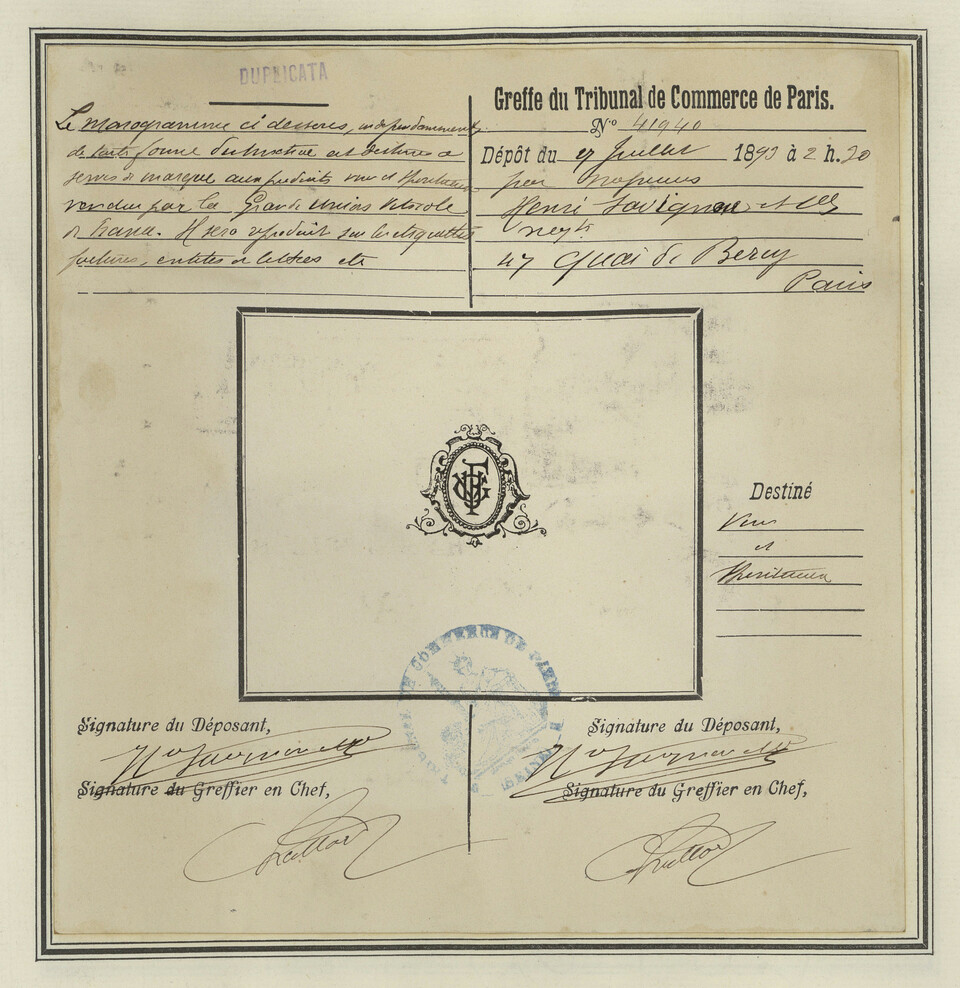 DUPLICATA
Le monogramme ci dessous, indépendamment
de toute forme distinctive est destiné a
servir de marque aux produits vins et spiritueux
vendus par la Grande Union Vinicole
de France. Il sera reproduit sur les étiquettes
factures, entêtes de lettres etc
Greffe du Tribunal de Commerce de Paris.
No 41940
Dépôt du Juillet 1893 à 2 h. 20
par Messieurs
Henri Savignon et Cie
negts
47 Quai de Bercy
Paris
Destiné
Vins
et
Spiritueux
COMMERCE DE PARIS
Signature du Déposant,
Signature du Déposant,
Signature du Greffier en Chef,
Signature du Greffier en Chef,